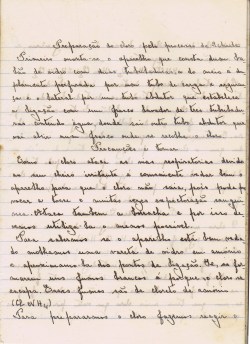 Preparação do cloro pelo processo de Scheele
Primeiro monta-se o aparelho que consta dum ba-
lão de vidro com duas tubuladuras, a do meio
atravessada por um tubo de carga e segui-
e a lateral por um tubo abductor que estabelece
a ligação com um frasco lavador de tres tubuladu-
ras contendo agua, donde sai outro tubo abductor que
vai abrir num frasco onde se recolhe o cloro.
Precauções a tomar
Como o cloro ataca as vias respiratorias devido
ao seu cheiro irritante é conveniente vedar bem o
aparelho para que o cloro não saia, pois pode pro-
vocar a tosse e muitas vezes expectoração sangui-
nea. Ataca tambem a borracha e por isso de-
vemos utilizá-la o menos possivel.
Para sabermos se o aparelho está bem veda-
do molhamos uma vareta de vidro em amónio
e aproximamo-la dos pontos de ligação. Se, se for-
marem uns fumos brancos é porque o cloro se
escapa. Esses fumos são de cloreto de amónio
(Cl NH4)
Para prepararmos o cloro fazemos reagir o